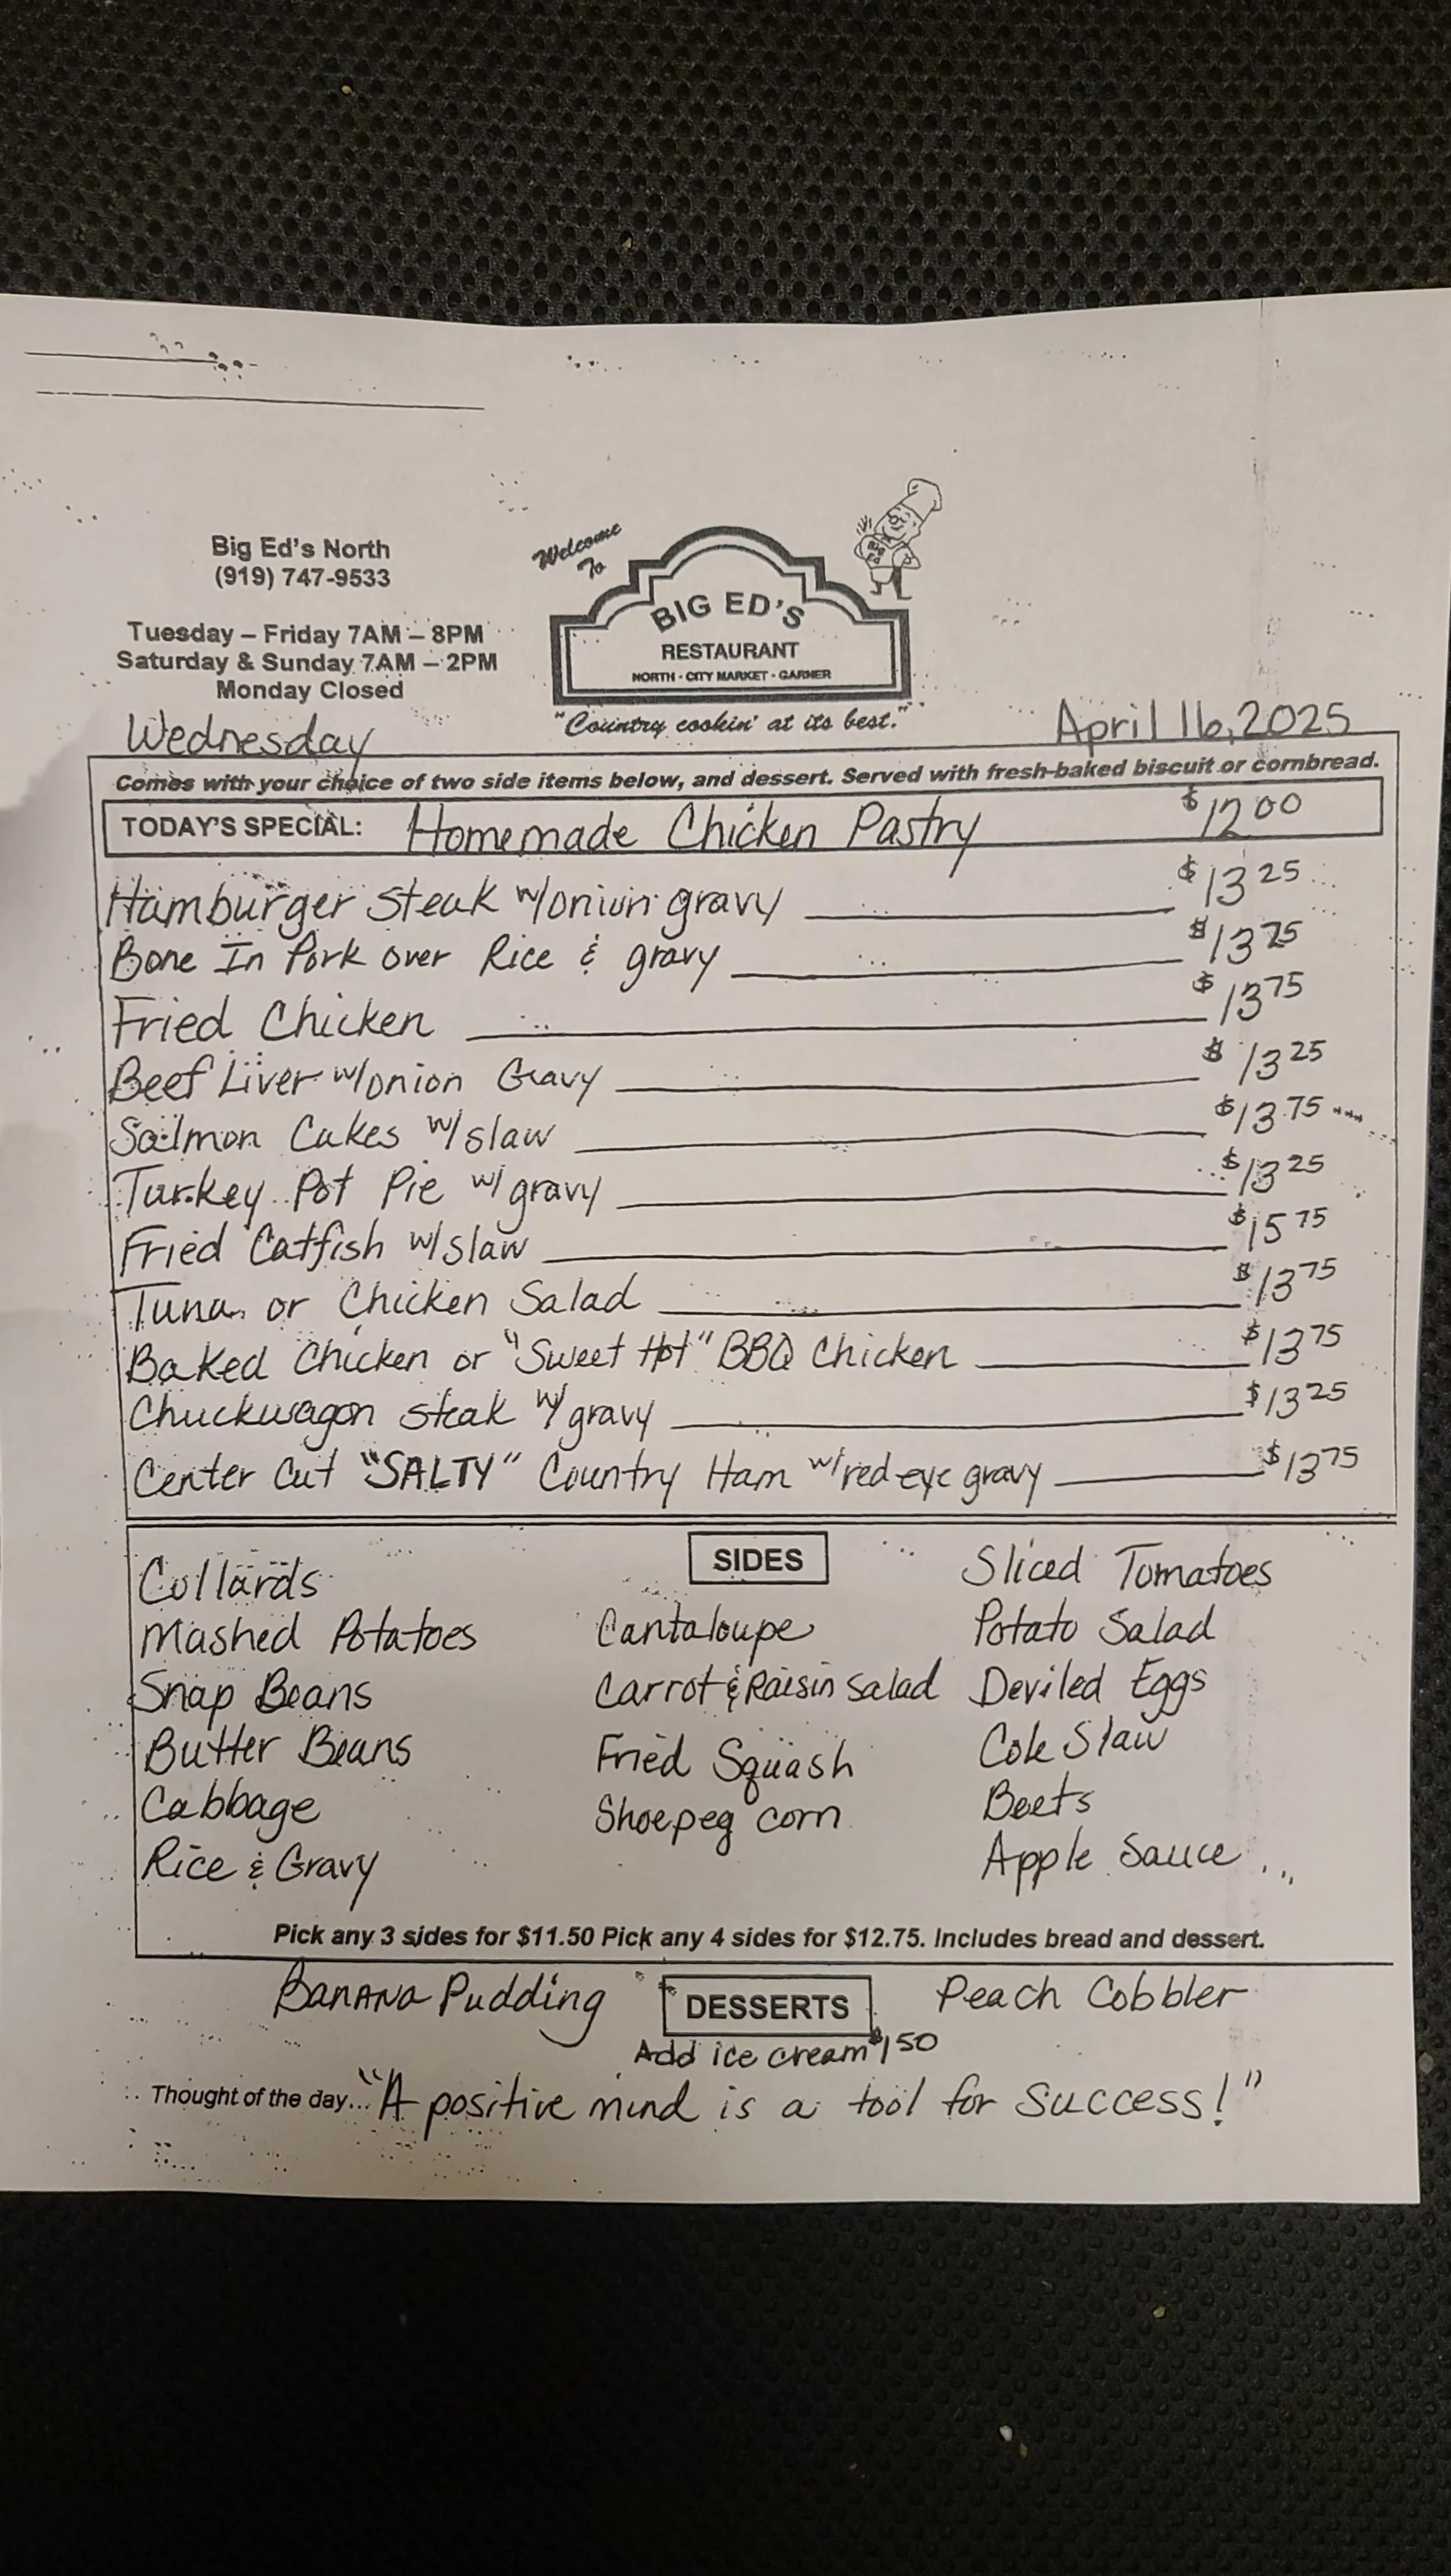 Big Ed's North
(919) 747-9533
Tuesday – Friday 7AM – 8PM
Saturday & Sunday 7AM – 2PM
Monday Closed
Welcome
To
BIG ED
BIG ED'S
RESTAURANT
NORTH - CITY MARKET - GARNER
"Country cookin' at its best."
Wednesday
April 16, 2025
Comes with your choice of two side items below, and dessert. Served with fresh-baked biscuit or cornbread.
TODAY'S SPECIAL: Homemade Chicken Pastry $12 00
Hamburger steak w/onion gravy $13 25
Bone In Pork over Rice & gravy $13 75
Fried Chicken $13 75
Beef Liver w/onion Gravy $13 25
Salmon Cakes w/slaw $13 75
Turkey Pot Pie w/ gravy $13 25
Fried Catfish w/slaw $15 75
Tuna or Chicken Salad $13 75
Baked Chicken or "Sweet Hot" BBQ Chicken $13 75
Chuckwagon steak w/ gravy $13 25
Center Cut "SALTY" Country Ham w/red eye gravy $13 75
SIDES
Collards
Mashed Potatoes
Snap Beans
Butter Beans
Cabbage
Rice & Gravy
Cantaloupe
Carrot & Raisin Salad
Fried Squash
Shoepeg corn
Sliced Tomatoes
Potato Salad
Deviled Eggs
Cole Slaw
Beets
Apple Sauce
Pick any 3 sides for $11.50 Pick any 4 sides for $12.75. Includes bread and dessert.
Banana Pudding DESSERTS Peach Cobbler
Add ice cream $1 50
Thought of the day... "A positive mind is a tool for success!"